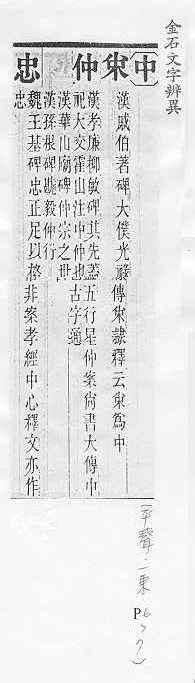 金石文字辨異
中 仲 忠
漢戚伯著碑大僕光祿傅 隸釋云 為中
漢孝廉柳敏碑其先蓋五行星仲案尚書大傳中
祀大交霍山注中仲也古字通
漢華山廟碑仲宗之世
漢孫根碑 毅仲行
魏王基碑忠正足以格非案孝經中心釋文亦作
忠
(平聲一東
P6、7)